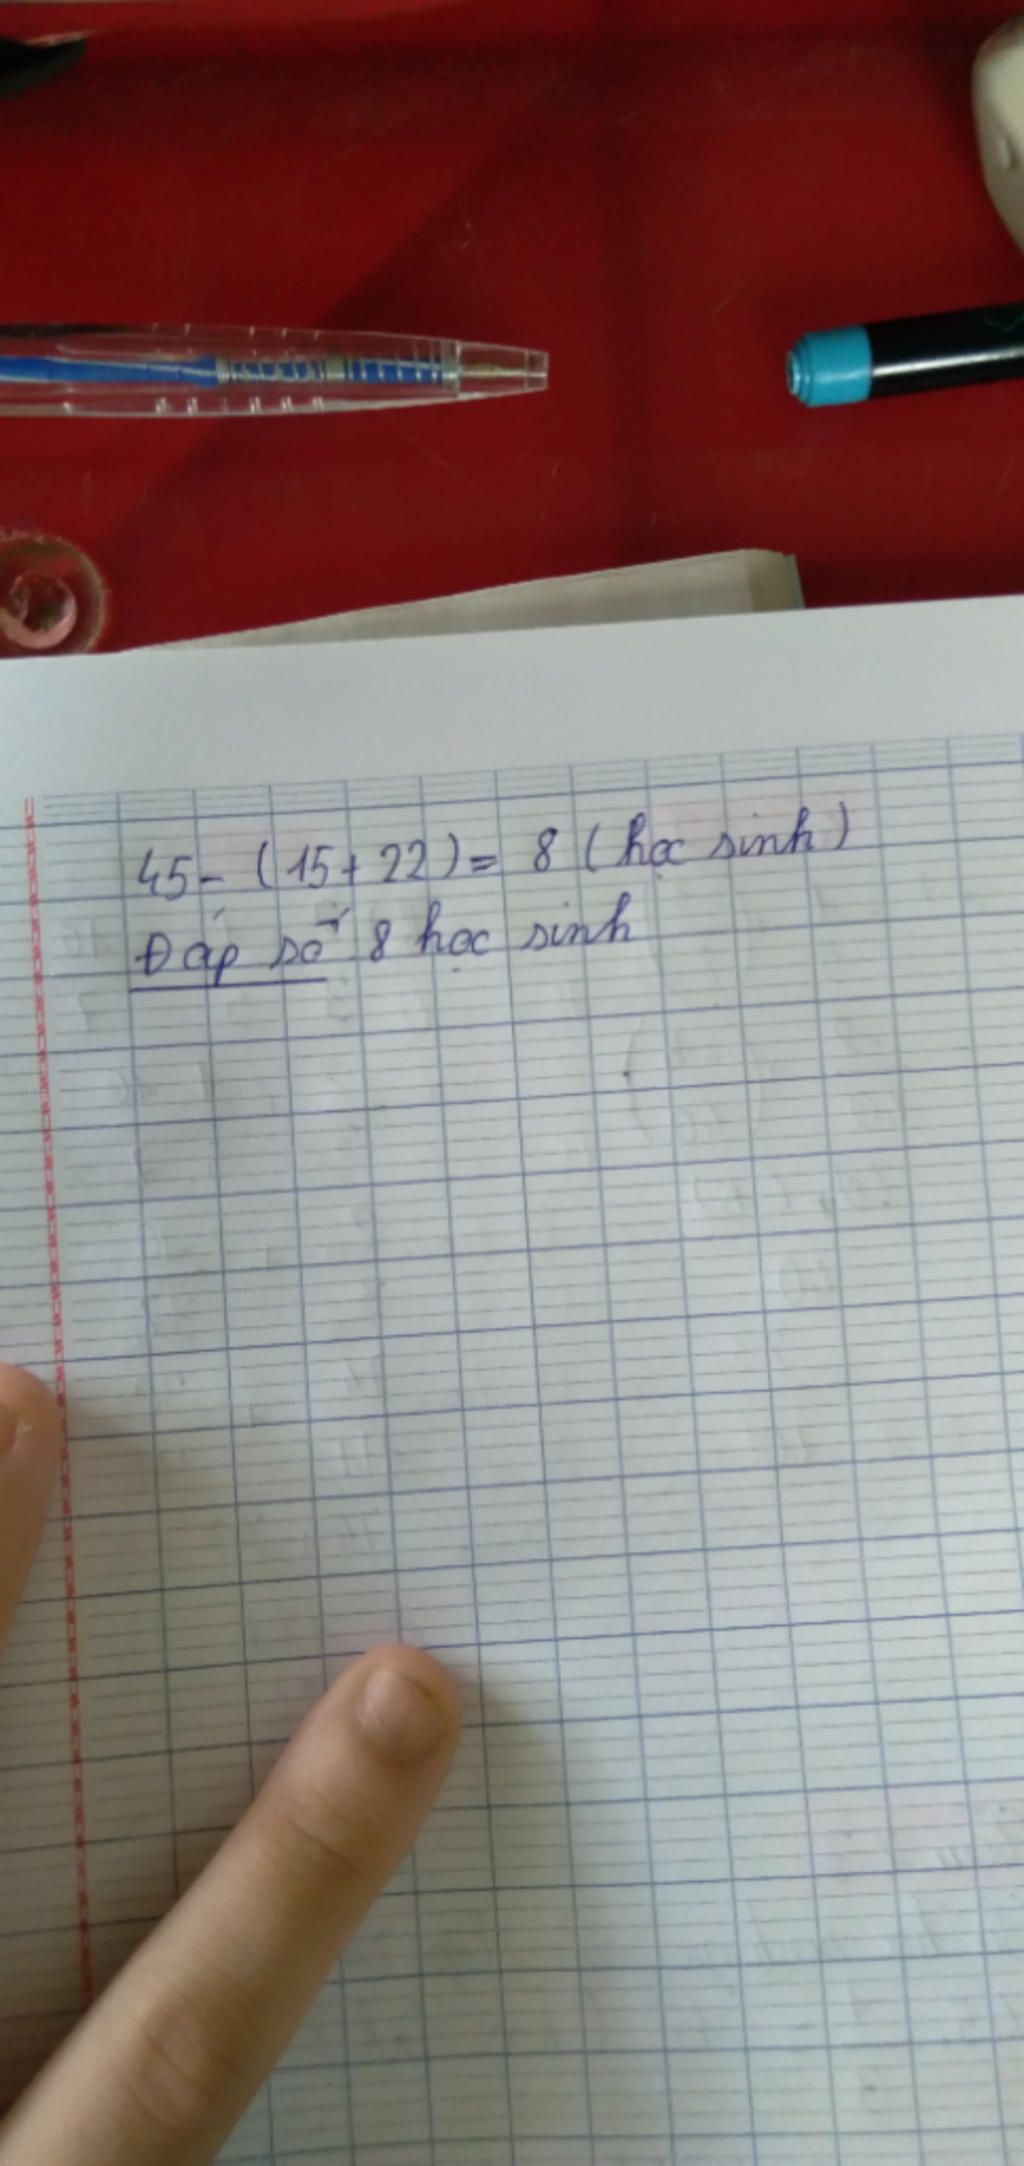 45 - (15 + 22) = 8 (học sinh)
Đáp số 8 học sinh